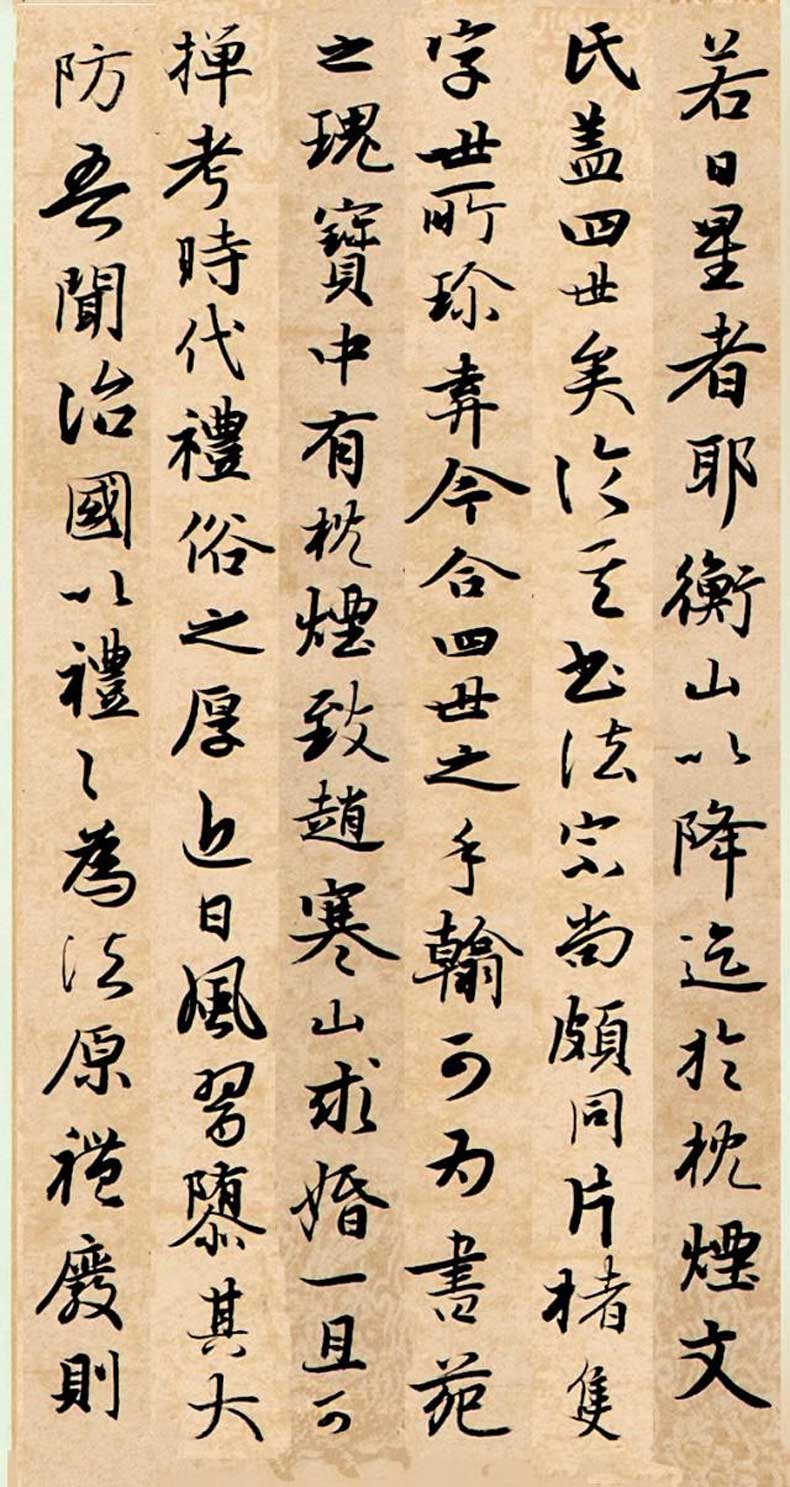 若日星者耶衡山以降迄於枕煙文
氏盖四世矣論其书法宗尚頗同片楮隻
字世所珎弆今合四世之手翰可为書苑
之瑰寶中有枕煙致趙寒山求婚一且可
撣考時代禮俗之厚近日風習隳其大
防吾聞治國以禮〻為法原禮廢則